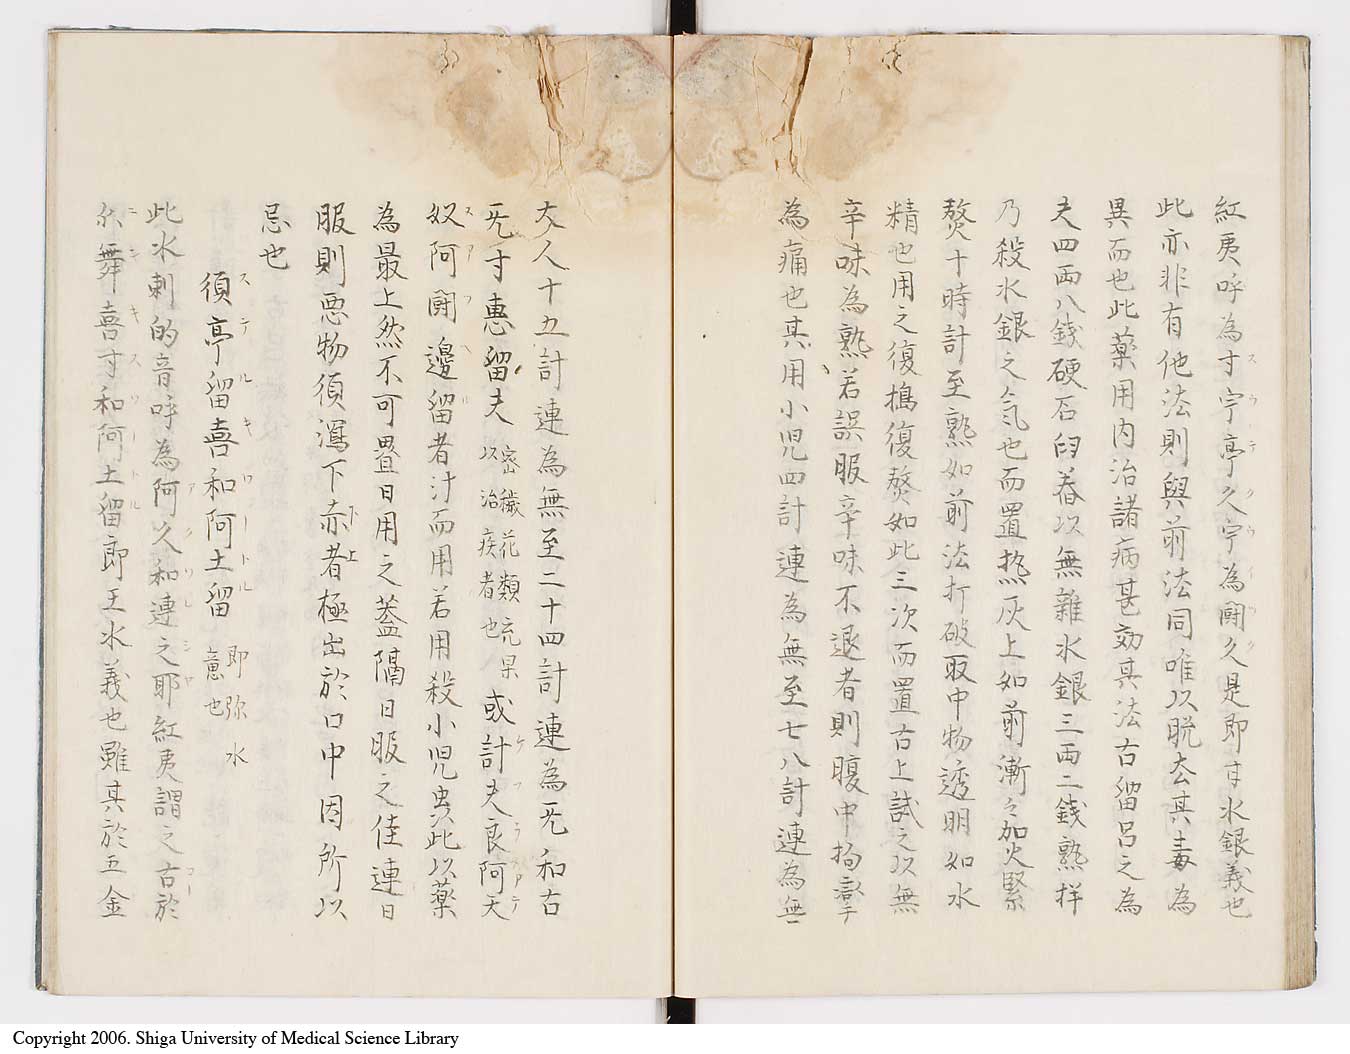 紅夷呼為寸宇亭久宇為閙久是即甘水銀義也
此亦非有他法則與前法同唯以脱去其毒為
異而也此薬用内治諸病甚効其法古留呂之為
夫四両八銭硬石臼舂以無雜水銀三両二銭熟拌
乃殺水銀之気也而置热灰上如前漸々加火緊
熬十時計至熟如前法打破取中物透明如水
精也用之復搗復熬如此三次而置古上試之以無
辛味為熟若誤服辛味不退者則腹中拘
為痛也其用小児四計連為無至七八計連為無
大人十五計連為無至二十四計連為旡和右
旡寸惠留夫 密穢花類充果 以治疾者也 或計夫良阿大
奴阿閙邊留者汁而用若用殺小児虫此以薬
為最上然不可畳日用之蓋隔日服之佳連日
服則悪物須瀉下赤者極出於口中因所以
忌也
須亭留喜和阿土留 即弥水 意也
此水刺的音呼為阿久和連之耶紅夷謂之古於
尓舞喜寸和阿土留即王水義也雖其於五金
Copyright 2006. Shiga University of Medical Science Library